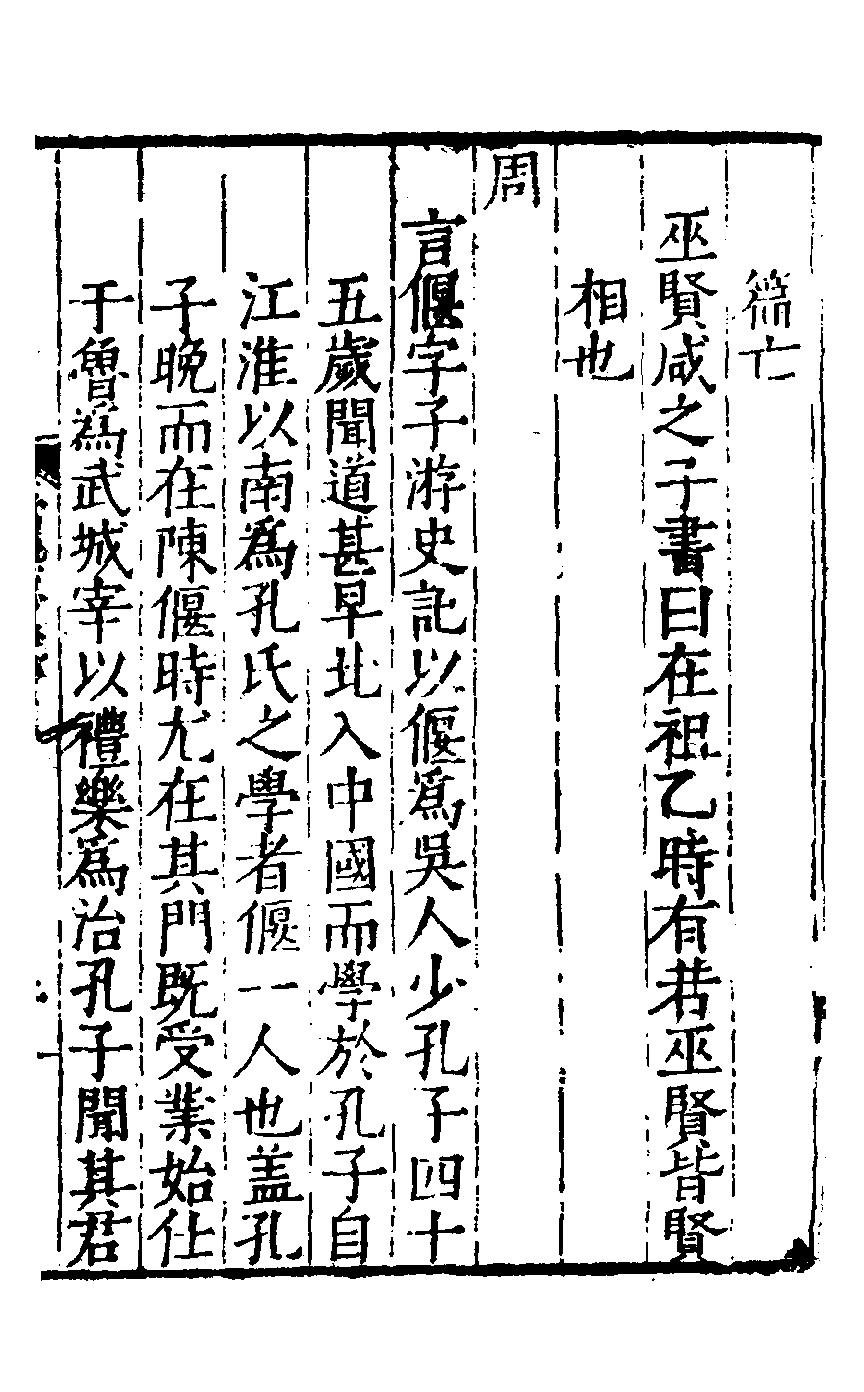 篇亡
巫賢咸之子書曰在祖乙時有若巫賢皆賢
相也
周
言偃字子游史記以偃爲吳人少孔子四十
五歲聞道甚早北入中國而學於孔子自
江淮以南爲孔氏之學者偃一人也蓋孔
子晚而在陳偃時尤在其門既受業始仕
于魯爲武城宰以禮樂爲治孔子聞其君